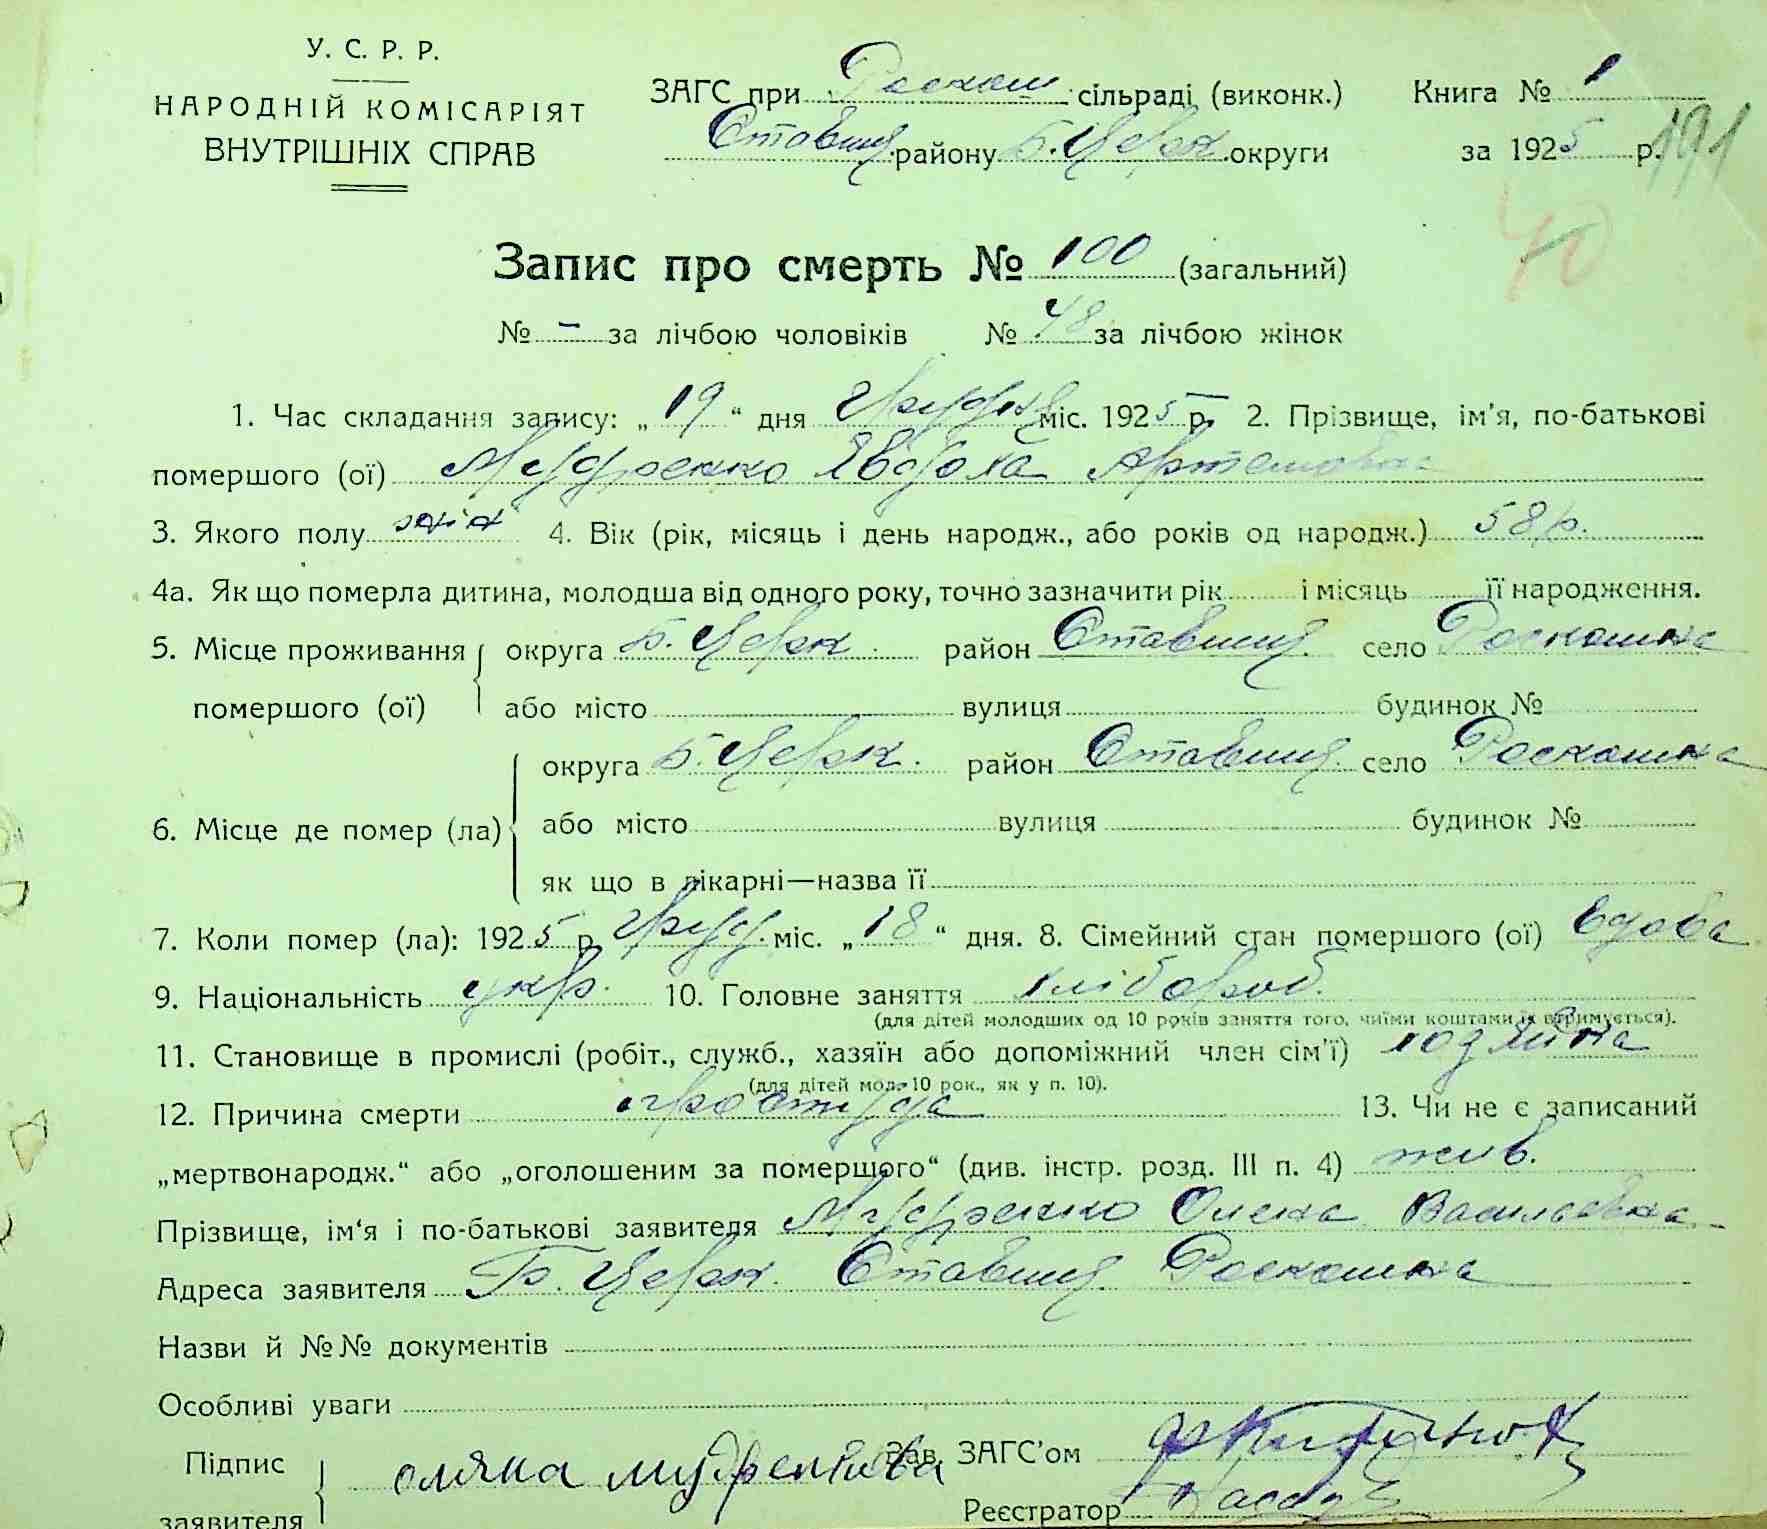 У. С. Р. Р.
НАРОДНІЙ КОМІСАРІЯТ
ВНУТРІШНІХ СПРАВ
ЗАГС при Роскош сільраді (виконк.) Книга № 1
Ставищ. району Б. Церк округи за 1925 р. 191
40
Запис про смерть № 100 (загальний)
№ – за лічбою чоловіків № 48 за лічбою жінок
1. Час складання запису: „19“ дня Грудня міс. 1925 р. 2. Прізвище, ім'я, по-батькові
помершого (ої) Мудренко Явдоха Артемовна
3. Якого полу жін 4. Вік (рік, місяць і день народж., або років од народж.) 58 р.
4а. Як що померла дитина, молодша від одного року, точно зазначити рік і місяць її народження.
5. Місце проживання помершого (ої) округа Б. Церк. район Ставищ. село Роскошна
або місто вулиця будинок №
6. Місце де помер (ла) округа Б. Церк. район Ставищ. село Роскошна
або місто вулиця будинок №
як що в лікарні—назва її
7. Коли помер (ла): 1925 р. Груд. міс. „18“ дня. 8. Сімейний стан помершого (ої) вдова
9. Національність укр. 10. Головне заняття хлібороб.
(для дітей молодших од 10 років заняття того, чиїми коштами їх втримується).
11. Становище в промислі (робіт., служб., хазяїн або допоміжний член сім'ї) хозяйка
(для дітей мол. 10 рок., як у п. 10).
12. Причина смерти простуда 13. Чи не є записаний
„мертвонародж.“ або „оголошеним за помершого“ (див. інстр. розд. III п. 4) жив.
Прізвище, ім'я і по-батькові заявителя Мудренко Олена Васильовна
Адреса заявителя Б. Церк. Ставищ. Роскошна
Назви й №№ документів
Особливі уваги
Підпис заявителя оляна мудренкова Зав. ЗАГС'ом
Реєстратор